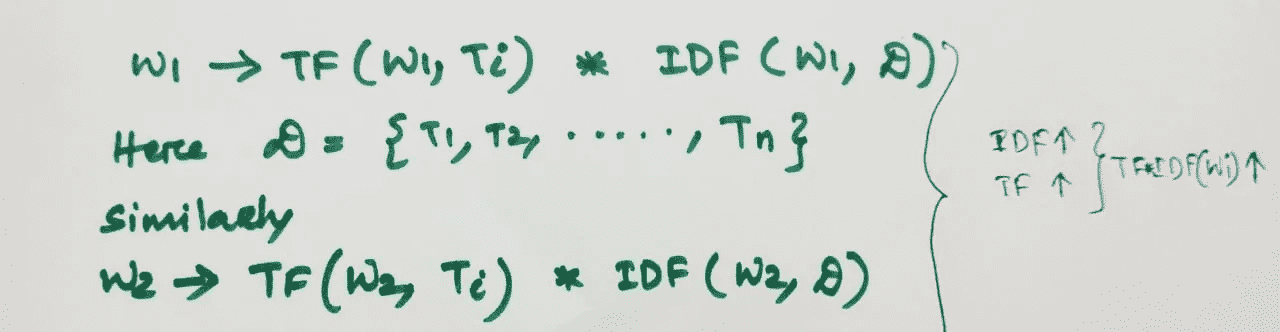 W1 → TF(W1, Ti) * IDF(W1, D)
Here D = {T1, T2, ......, Tn}
Similarly
W2 → TF(W2, Ti) * IDF(W2, D)
IDF↑
TF ↑
TF*IDF(Wi)↑